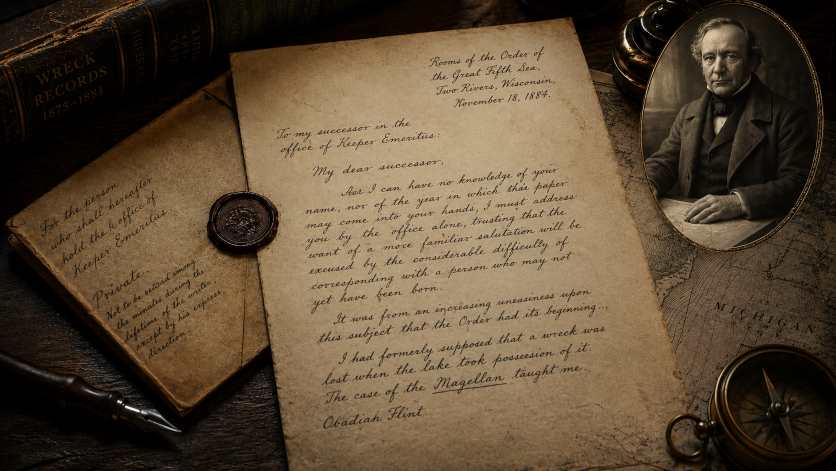 WRECK
RECORDS
1875-1884
For the person
who shall hereafter
hold the office of
Keeper Emeritus
Private.
Not to be record among
the minutes during the
lifetime of the writer,
except by his express
direction.
Rooms of the Order of
the Great Fifth Sea,
Two Rivers, Wisconsin,
November 18, 1884.
To my successor in the
office of Keeper Emeritus:
My dear successor,
As I can have no knowledge of your
name, nor of the year in which this paper
may come into your hands, I must address
you by the office alone, trusting that the
want of a more familiar salutation will be
excused by the considerable difficulty of
corresponding with a person who may not
yet have been born.
It was from an increasing uneasiness upon
this subject that the Order had its beginning...
I had formerly supposed that a wreck was
lost when the lake took possession of it.
The case of the Magellan taught me.
Obadiah Flint
MICHIGAN